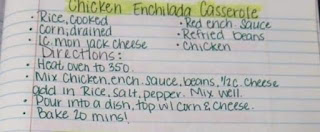 Chicken Enchilada Casserole
• Rice, cooked • Red ench sauce
• Corn, drained • Refried beans
• 1c. mon jack cheese • Chicken
Directions:
• Heat oven to 350.
• Mix chicken, ench. sauce, beans, 1/2c. cheese
add in Rice, salt, pepper. Mix well.
• Pour into a dish, top w/ corn & cheese.
• Bake 20 mins!